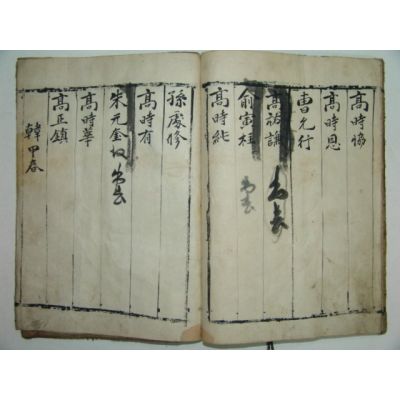 高時協
高時恩
曺允行
高祐謙
俞寅柱
高時能
孫處修
高時有
朱元金
高時華
高正鎮
韓甲春